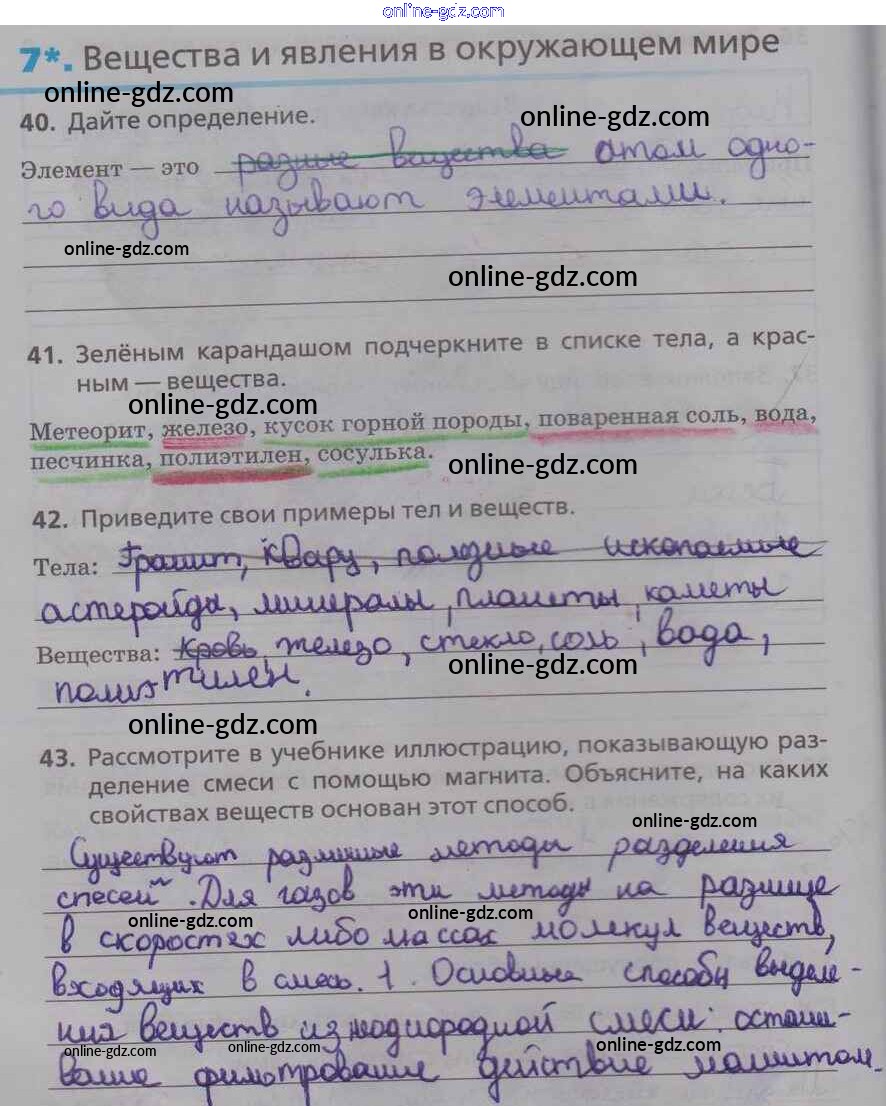 online-gdz.com
7*. Вещества и явления в окружающем мире
online-gdz.com
online-gdz.com
40. Дайте определение.
Элемент — это разные вещества атом одно-
го вида называют элементами.
online-gdz.com
online-gdz.com
41. Зелёным карандашом подчеркните в списке тела, а крас-
ным — вещества.
online-gdz.com
Метеорит, железо, кусок горной породы, поваренная соль, вода,
песчинка, полиэтилен, сосулька.
online-gdz.com
42. Приведите свои примеры тел и веществ.
Тела: Гранит, кварц, полезные ископаемые
астеройды, минералы, планеты, каметы
Вещества: кровь железо, стекло, соль, вода,
online-gdz.com
полиэтилен.
online-gdz.com
43. Рассмотрите в учебнике иллюстрацию, показывающую раз-
деление смеси с помощью магнита. Объясните, на каких
свойствах веществ основан этот способ.
online-gdz.com
Существуют различные методы разделения
спесей. Для газов эти методы на разнице
online-gdz.com
online-gdz.com
в скоростях либо массах молекул веществ,
входящих в смесь. 1. Основные способы выделе-
ния веществ из неоднородной смеси: отстаи-
online-gdz.com
online-gdz.com
online-gdz.com
вание фильтрование действие магнитом.